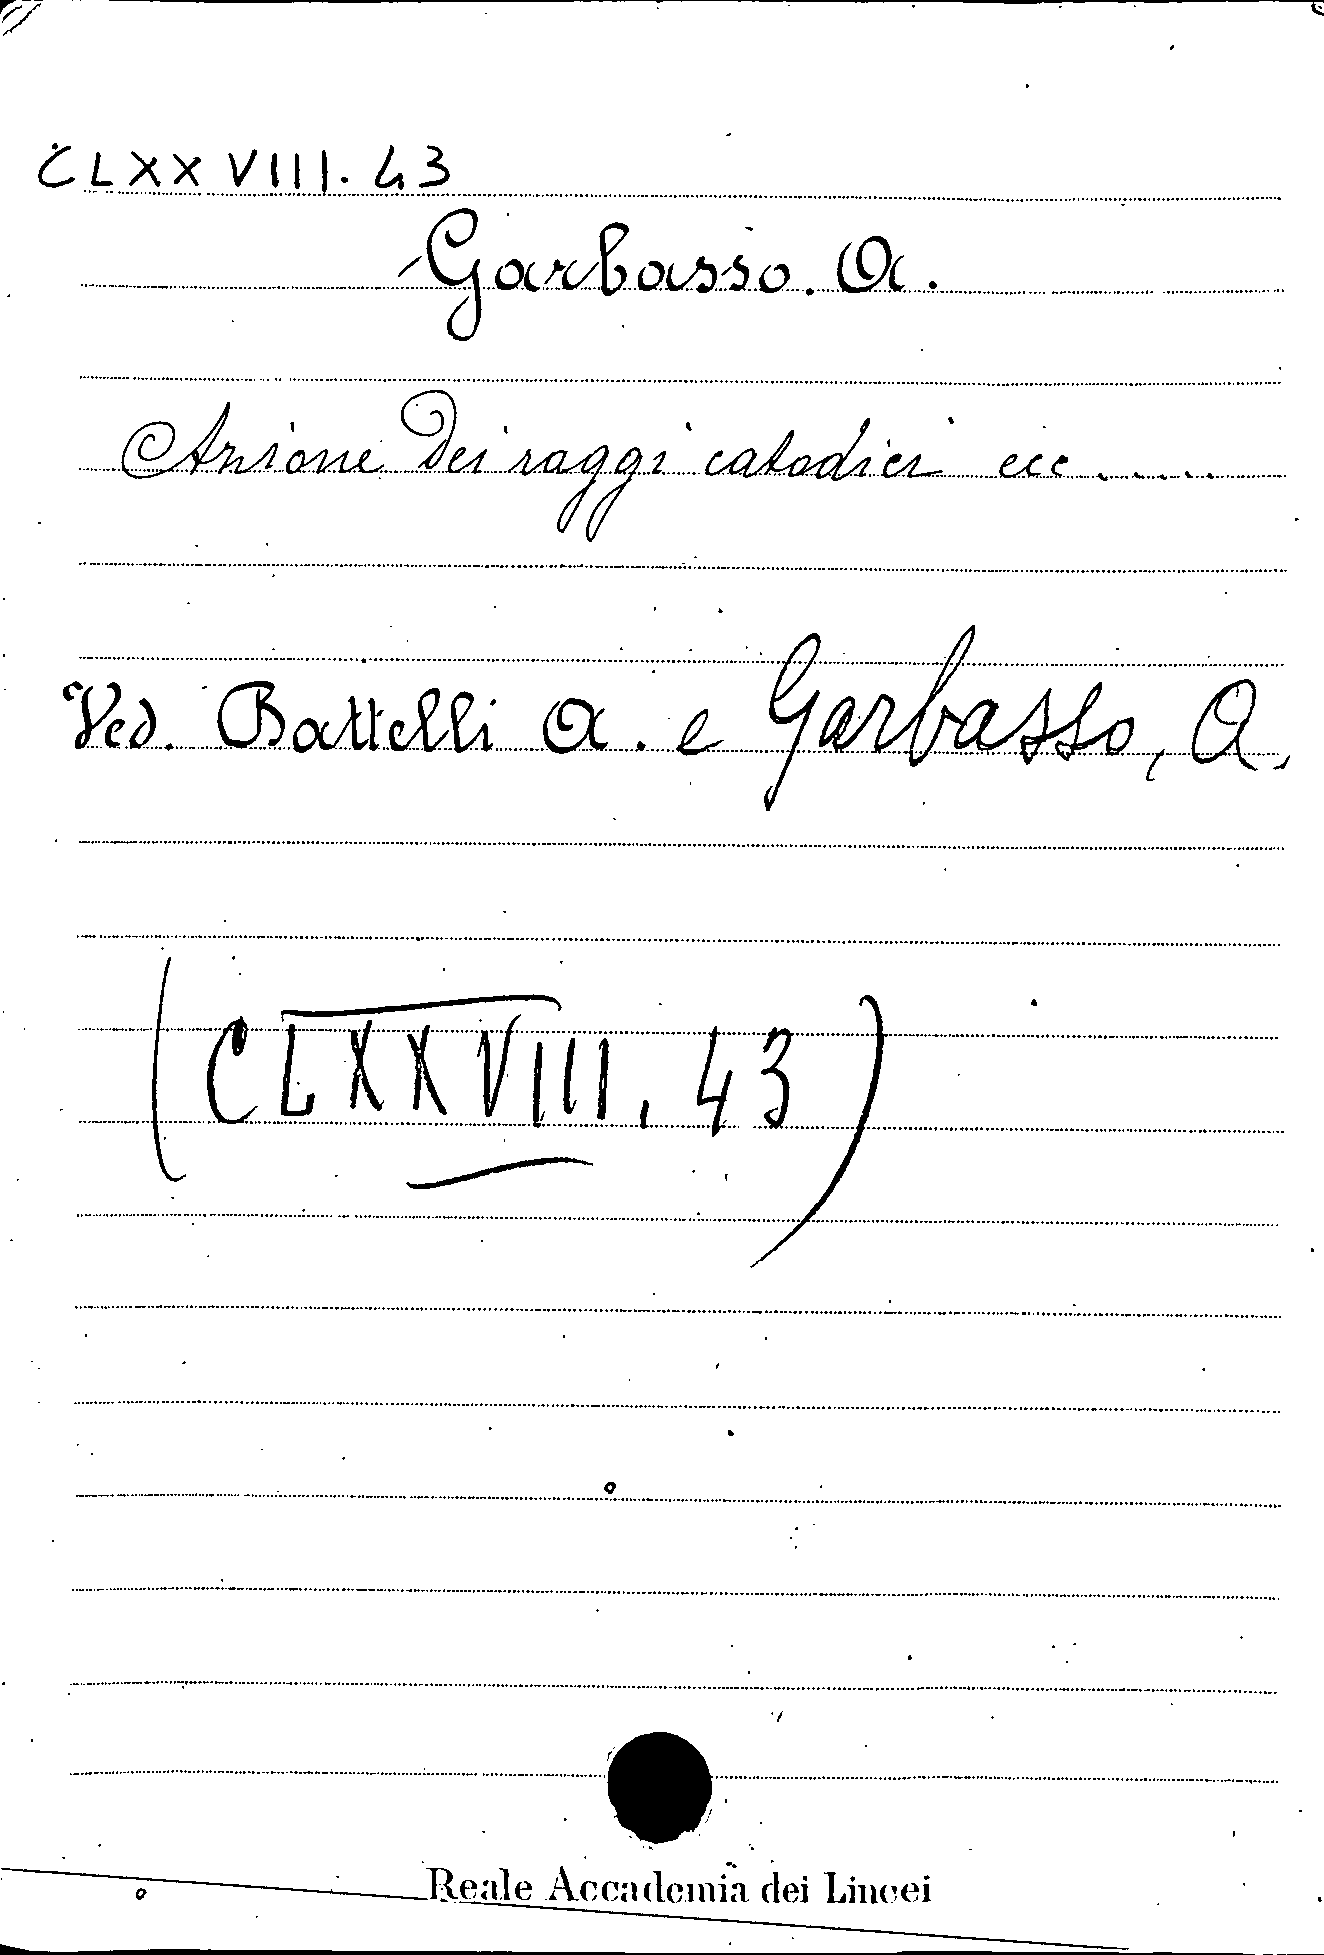 CLXXVIII. 43
Garbasso. A.
Azione dei raggi catodici ecc......
Ved. Battelli A. e Garbasso, A.
(CLXXVIII. 43)
Reale Accademia dei Lincei